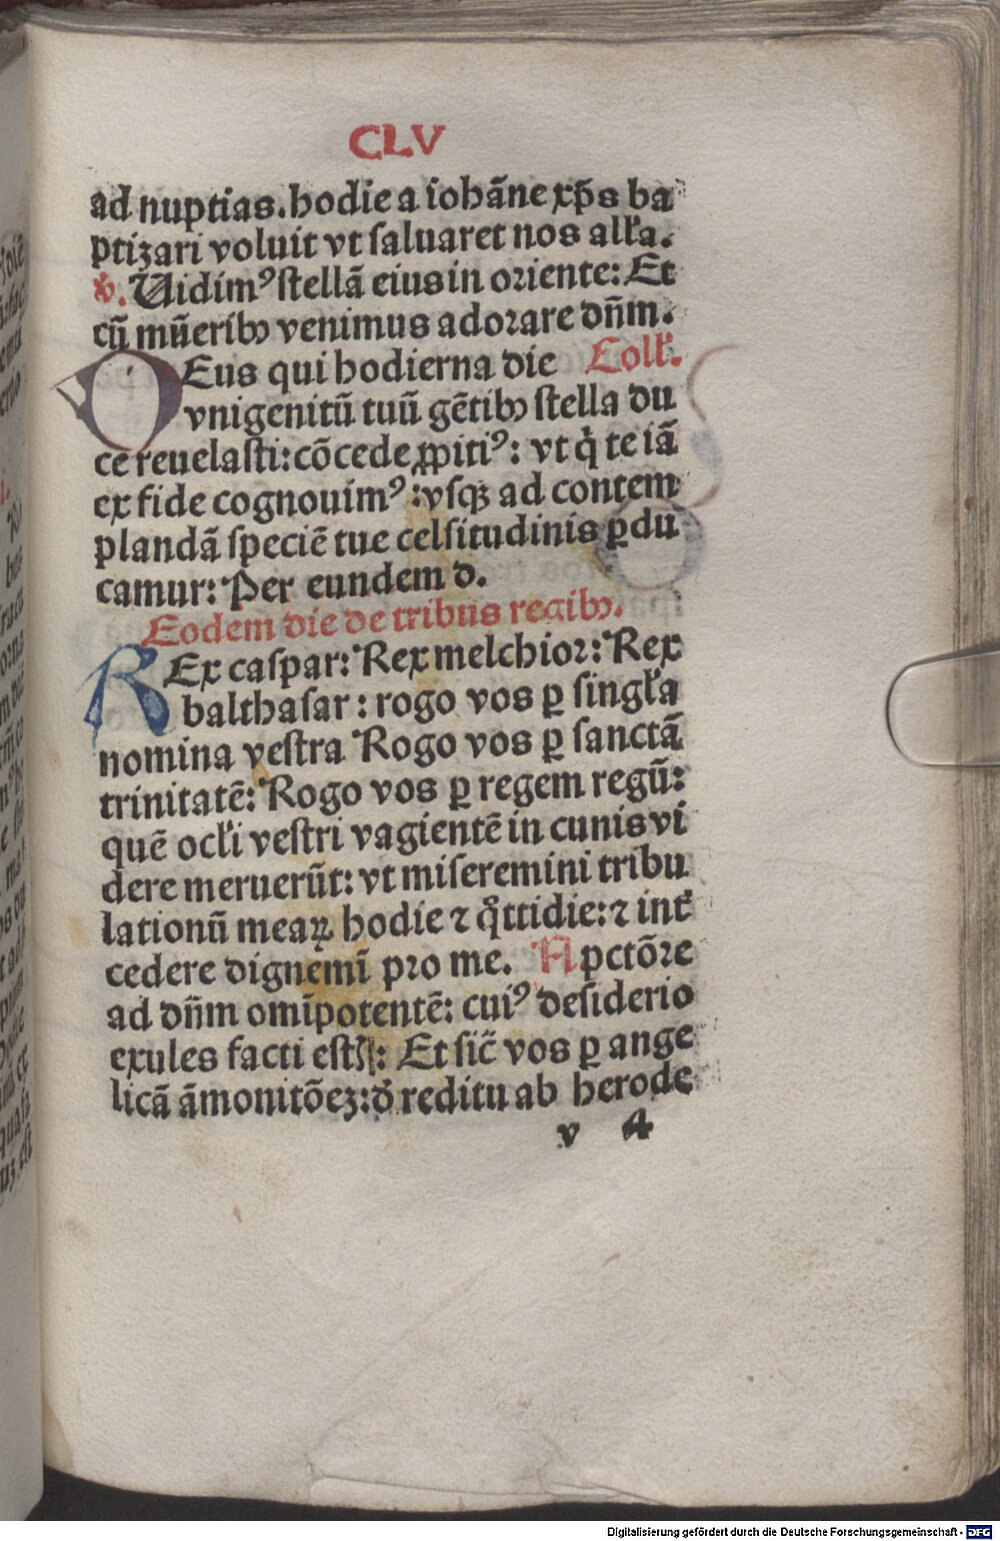 CLV
ad nuptias. hodie a iohāne xp̄s ba
ptizari voluit vt saluaret nos all'a.
v̊. Uidim⁹ stellā eius in oriente: Et
cū mūerib⁹ venimus adorare dn̄m.
DEus qui hodierna die Coll'.
vnigenitū tuū gētib⁹ stella du
ce reuelasti: cōcede ꝓpiti⁹: vt q̇ te iā
ex fide cognouim⁹: vsqꝫ ad contem
plandā speciē tue celsitudinis ꝑdu
camur: Per eundem d.
Eodem die de tribus regib⁹.
REx caspar: Rex melchior: Rex
balthasar: rogo vos ꝑ singl'a
nomina vestra Rogo vos ꝑ sanctā
trinitatē: Rogo vos ꝑ regem regū:
quē ocl'i vestri vagientē in cunis vi
dere meruerūt: vt miseremini tribu
lationū meaꝝ hodie ⁊ q̊ttidie: ⁊ int̉
cedere dignemī pro me. A pctōre
ad dn̄m omīpotentē: cui⁹ desiderio
exules facti est]: Et sic̄ vos ꝑ ange
licā āmonitōeꝫ: d̓ reditu ab herode
v 4
Digitalisierung gefördert durch die Deutsche Forschungsgemeinschaft - DFG